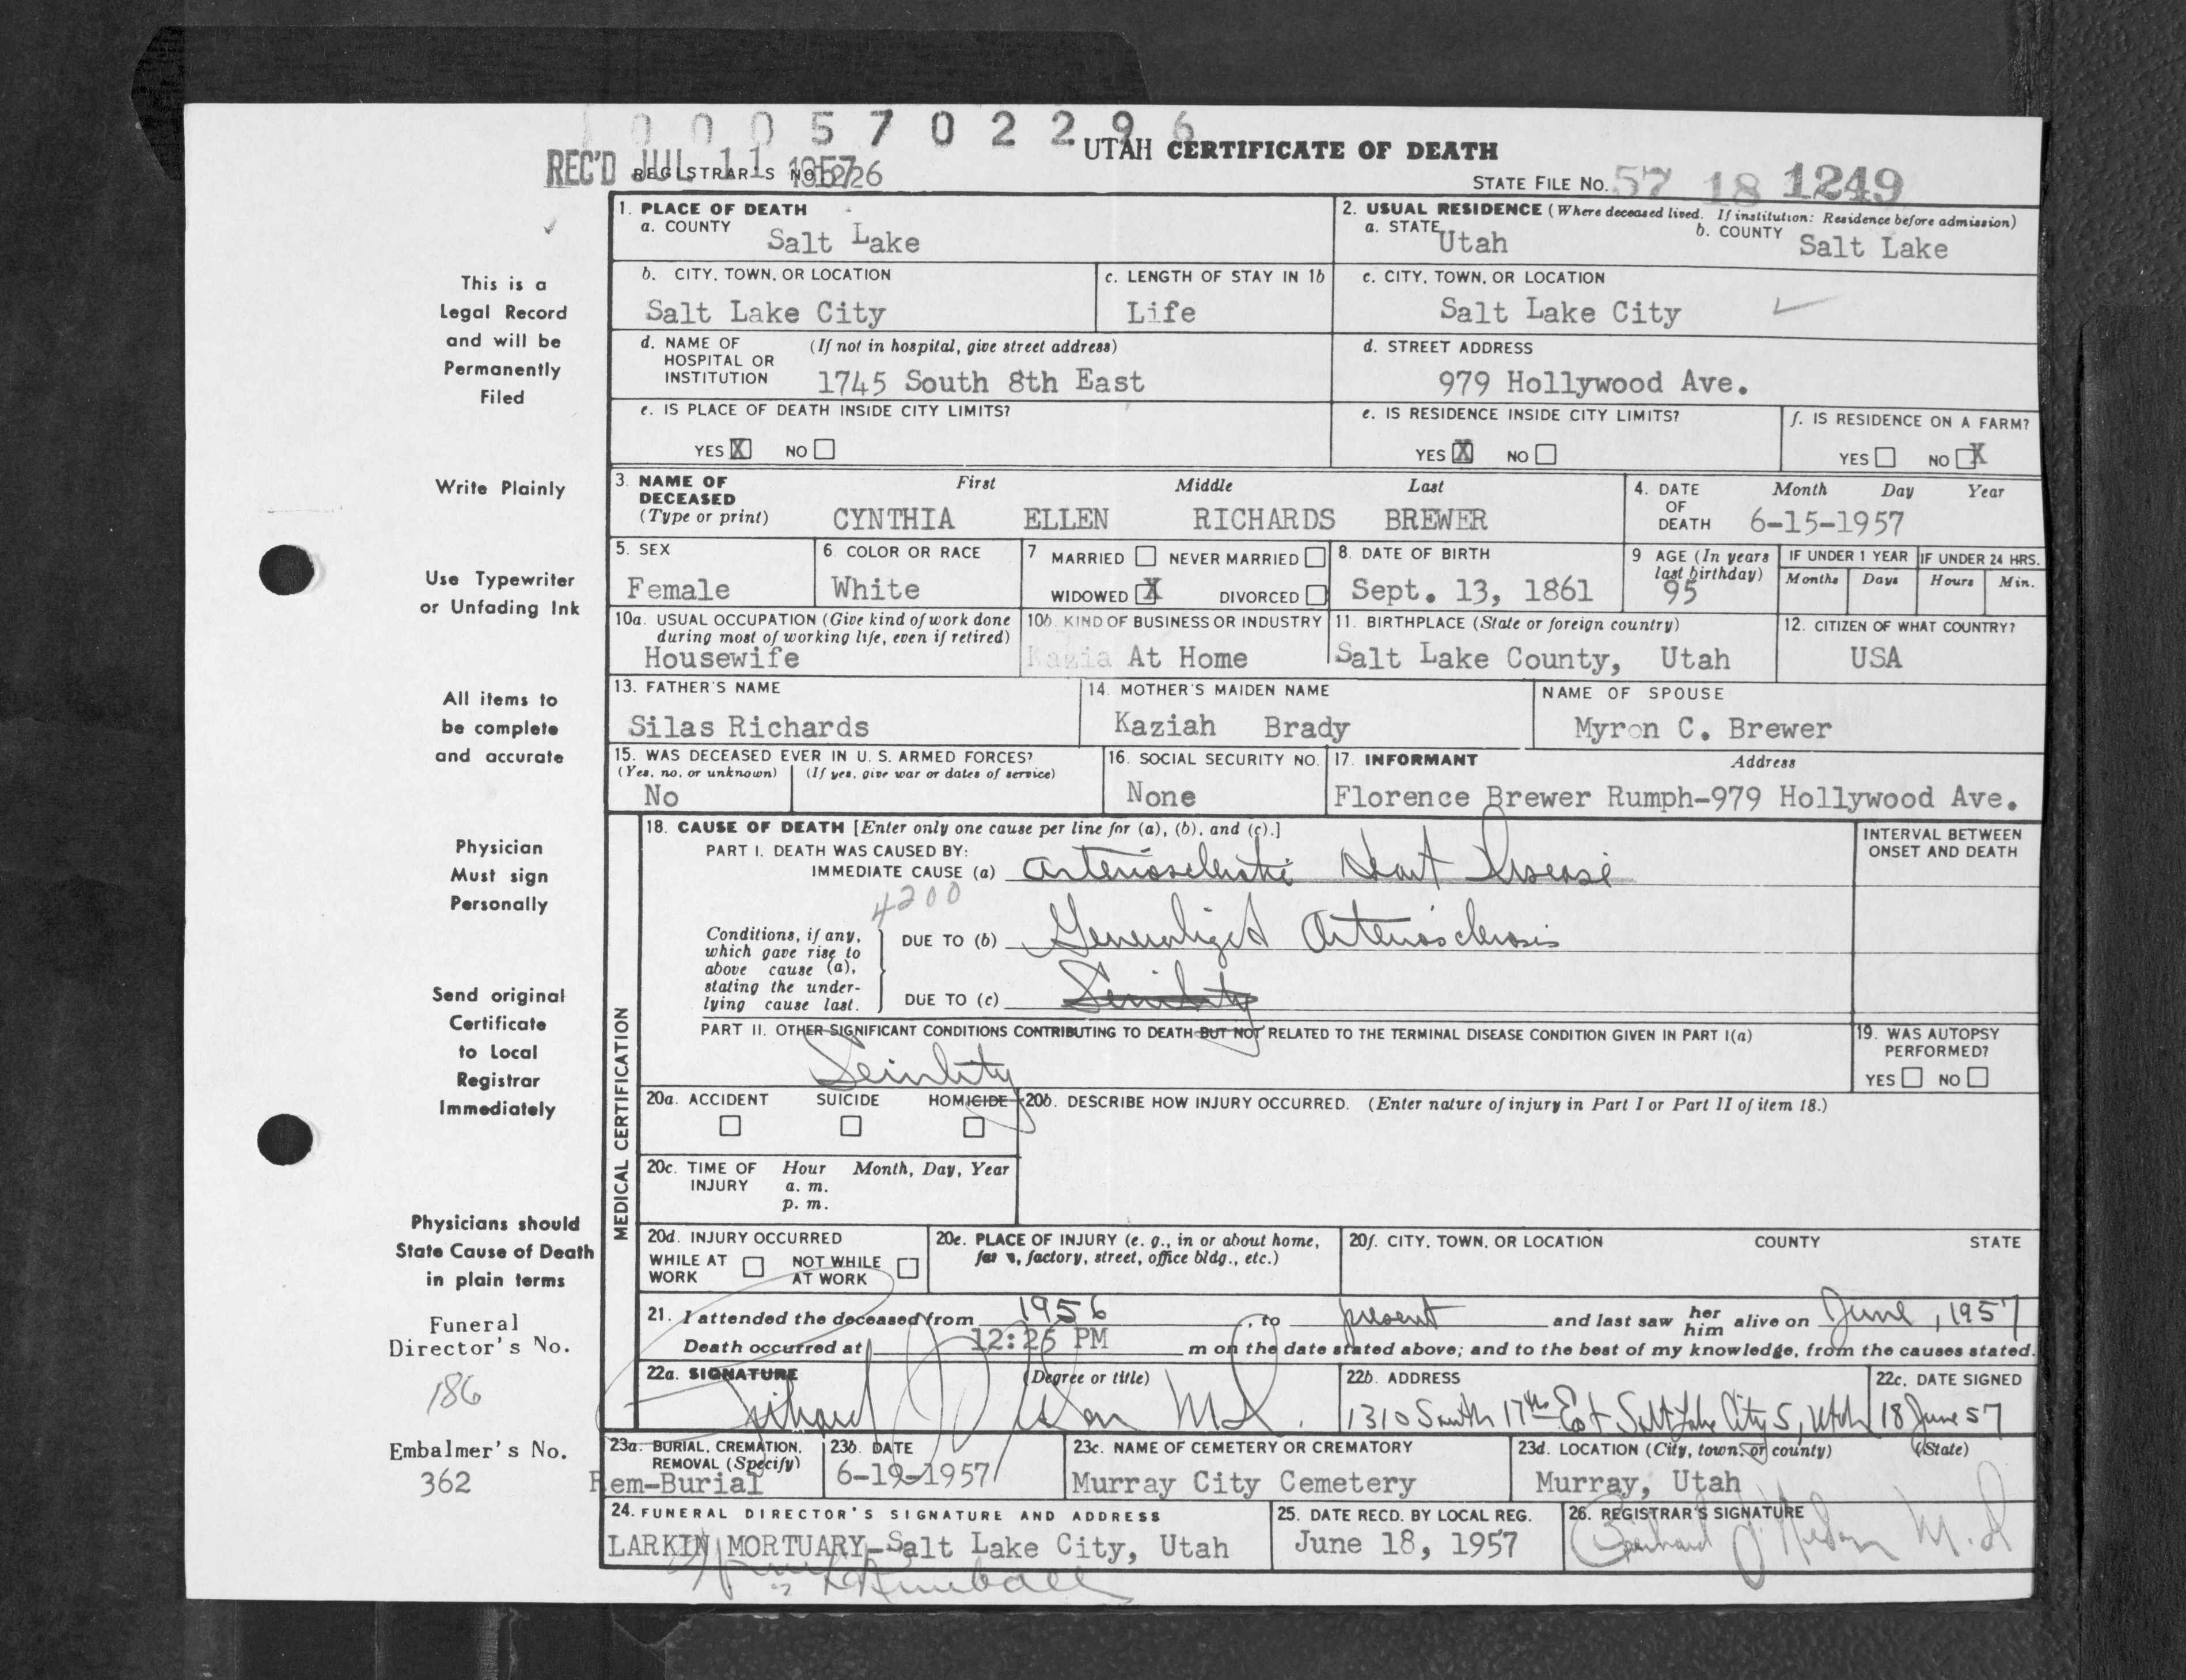 0 0 0 5 7 0 2 2 9 6
UTAH CERTIFICATE OF DEATH
REC'D JUL 11 1957
REGISTRAR'S NO.
STATE FILE NO. 57 18 1249
1. PLACE OF DEATH
a. COUNTY Salt Lake
2. USUAL RESIDENCE (Where deceased lived. If institution: Residence before admission)
a. STATE Utah b. COUNTY Salt Lake
b. CITY, TOWN, OR LOCATION
Salt Lake City
c. LENGTH OF STAY IN 1b
Life
c. CITY, TOWN, OR LOCATION
Salt Lake City
d. NAME OF HOSPITAL OR INSTITUTION (If not in hospital, give street address)
1745 South 8th East
d. STREET ADDRESS
979 Hollywood Ave.
e. IS PLACE OF DEATH INSIDE CITY LIMITS?
YES X NO
e. IS RESIDENCE INSIDE CITY LIMITS?
YES X NO
f. IS RESIDENCE ON A FARM?
YES NO X
3. NAME OF DECEASED (Type or print) First Middle Last
CYNTHIA ELLEN RICHARDS BREWER
4. DATE OF DEATH Month Day Year
6-15-1957
5. SEX
Female
6. COLOR OR RACE
White
7 MARRIED NEVER MARRIED
WIDOWED X DIVORCED
8. DATE OF BIRTH
Sept. 13, 1861
9 AGE (In years last birthday)
95
IF UNDER 1 YEAR
Months Days
IF UNDER 24 HRS.
Hours Min.
10a. USUAL OCCUPATION (Give kind of work done during most of working life, even if retired)
Housewife
10b. KIND OF BUSINESS OR INDUSTRY
At Home
11. BIRTHPLACE (State or foreign country)
Salt Lake County, Utah
12. CITIZEN OF WHAT COUNTRY?
USA
13. FATHER'S NAME
Silas Richards
14. MOTHER'S MAIDEN NAME
Kaziah Brady
NAME OF SPOUSE
Myron C. Brewer
15. WAS DECEASED EVER IN U. S. ARMED FORCES?
(Yes, no, or unknown) (If yes, give war or dates of service)
No
16. SOCIAL SECURITY NO.
None
17. INFORMANT Address
Florence Brewer Rumph-979 Hollywood Ave.
MEDICAL CERTIFICATION
18. CAUSE OF DEATH [Enter only one cause per line for (a), (b), and (c).]
PART I. DEATH WAS CAUSED BY:
IMMEDIATE CAUSE (a) Arteriosclerotic Heart Disease
4200
Conditions, if any, which gave rise to above cause (a), stating the underlying cause last.
DUE TO (b) Generalized Arteriosclerosis
DUE TO (c) Senility
INTERVAL BETWEEN ONSET AND DEATH
PART II. OTHER SIGNIFICANT CONDITIONS CONTRIBUTING TO DEATH BUT NOT RELATED TO THE TERMINAL DISEASE CONDITION GIVEN IN PART I(a)
Senility
19. WAS AUTOPSY PERFORMED?
YES NO
20a. ACCIDENT SUICIDE HOMICIDE
20b. DESCRIBE HOW INJURY OCCURRED. (Enter nature of injury in Part I or Part II of item 18.)
20c. TIME OF INJURY Hour Month, Day, Year
a. m.
p. m.
20d. INJURY OCCURRED
WHILE AT WORK NOT WHILE AT WORK
20e. PLACE OF INJURY (e. g., in or about home, farm, factory, street, office bldg., etc.)
20f. CITY, TOWN, OR LOCATION COUNTY STATE
21. I attended the deceased from 1956, to present and last saw her him alive on June, 1957
Death occurred at 12:25 PM m on the date stated above; and to the best of my knowledge, from the causes stated.
22a. SIGNATURE (Degree or title)
M.D.
22b. ADDRESS
1310 South 17th East Salt Lake City 5, Utah
22c. DATE SIGNED
18 June 57
23a. BURIAL, CREMATION, REMOVAL (Specify)
Rem-Burial
23b. DATE
6-19-1957
23c. NAME OF CEMETERY OR CREMATORY
Murray City Cemetery
23d. LOCATION (City, town, or county) (State)
Murray, Utah
24. FUNERAL DIRECTOR'S SIGNATURE AND ADDRESS
LARKIN MORTUARY-Salt Lake City, Utah
25. DATE RECD. BY LOCAL REG.
June 18, 1957
26. REGISTRAR'S SIGNATURE
M.D
This is a
Legal Record
and will be
Permanently
Filed
Write Plainly
Use Typewriter
or Unfading Ink
All items to
be complete
and accurate
Physician
Must sign
Personally
Send original
Certificate
to Local
Registrar
Immediately
Physicians should
State Cause of Death
in plain terms
Funeral
Director's No.
186
Embalmer's No.
362